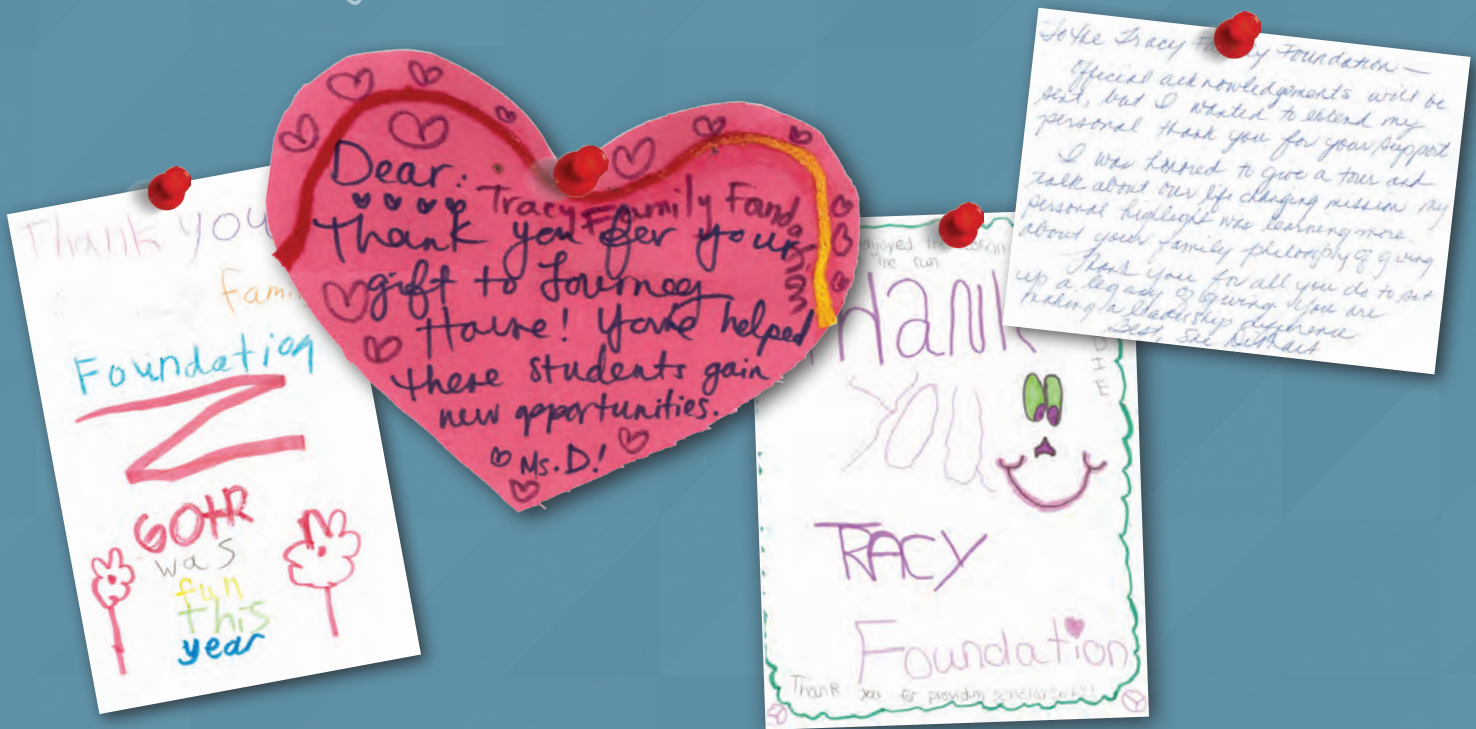 Thank you
fami
Foundation
GOTR
was
fun
this
year
Dear:
Tracy Family Fandation
Thank you fer your
gift to Journey
House! You've helped
these students gain
new opportunities.
Ms. D!
enjoyed the
the run.
Hank
you
TRACY
Foundation
Thank you for providing scholarships!
DIE
To the Tracy Family Foundation —
Official acknowledgements will be
sent, but I wanted to extend my
personal thank you for your support
I was honored to give a tour and
talk about our life changing mission my
personal highlight was learning more
about your family philosophy of giving
Thank you for all you do to set
up a legacy of giving. You are
making a leadership difference
Best, Sue